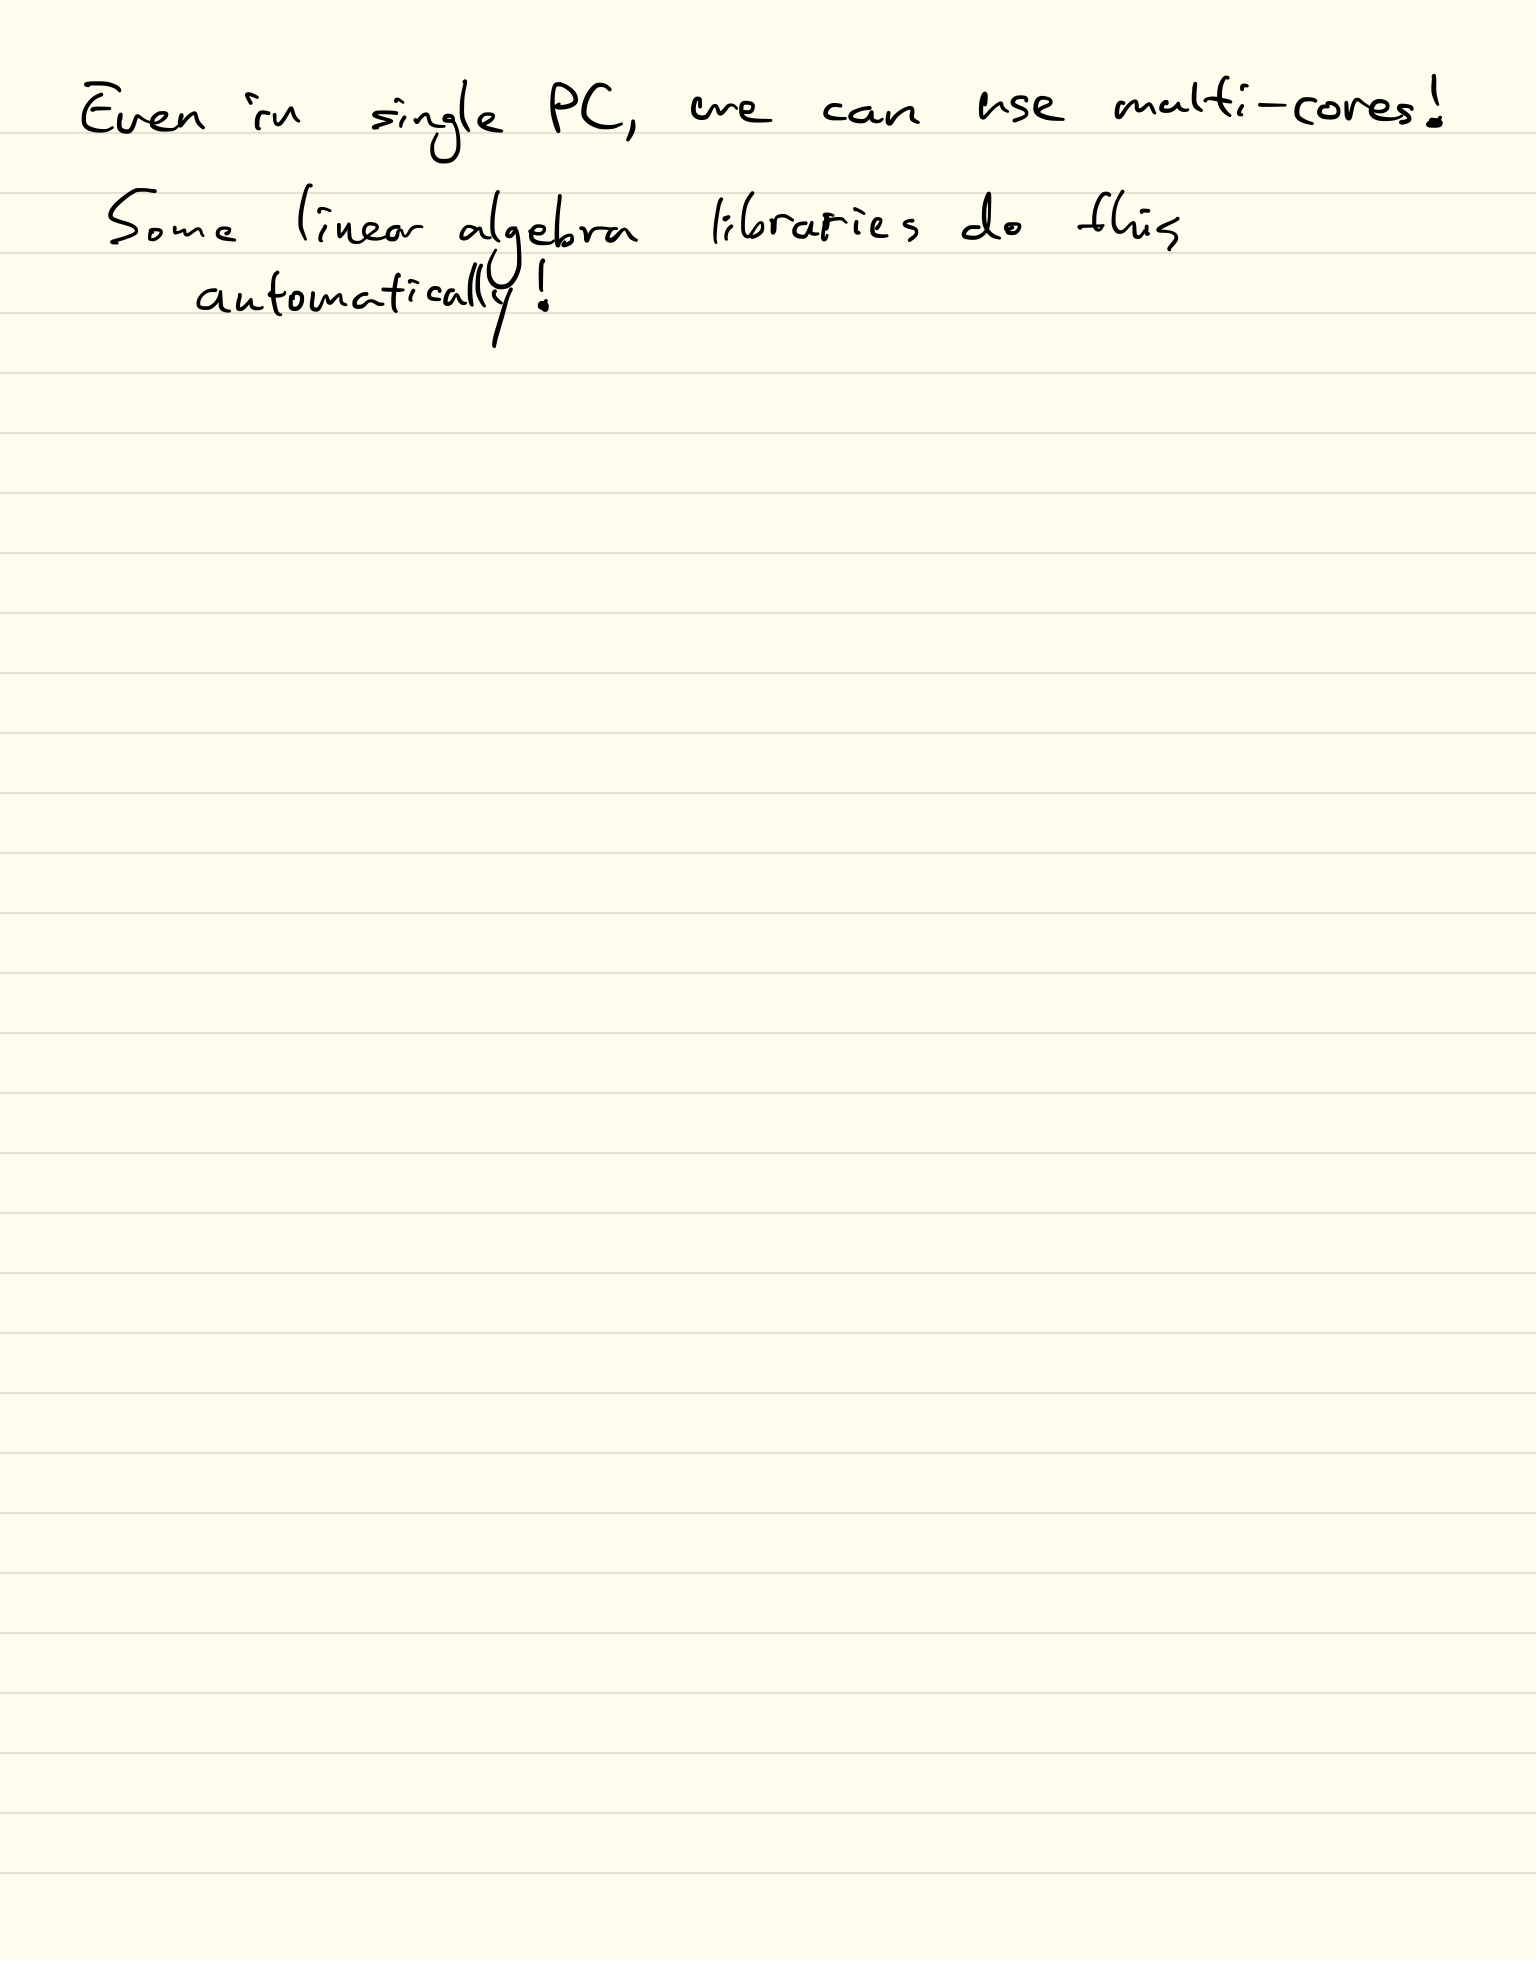 Even in single PC, we can use multi-cores!
Some linear algebra libraries do this
automatically!